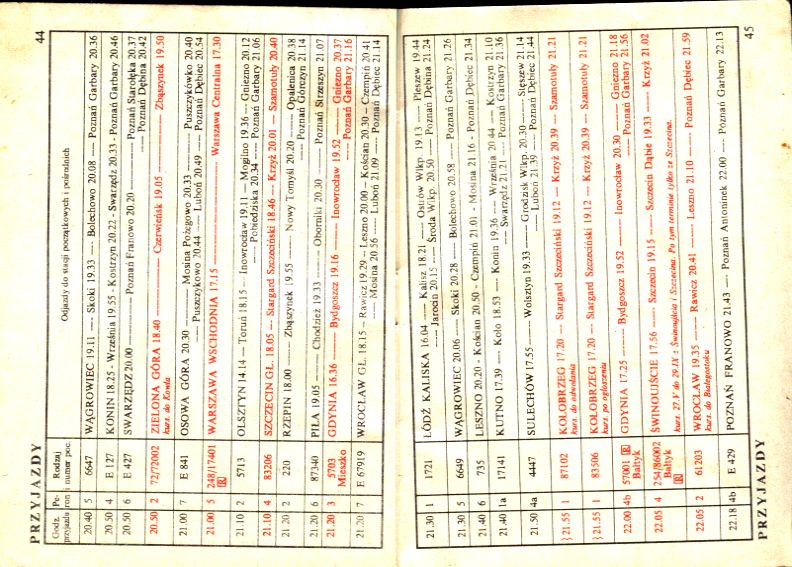 44
PRZYJAZDY
Godz. przyjazdu Pe- ron Rodzaj i numer poc. Odjazdy do stacji początkowych i pośrednich
20.40 5 6647 WĄGROWIEC 19.11 — Skoki 19.33 — Bolechowo 20.08 — Poznań Garbary 20.36
20.50 4 E 127 KONIN 18.25 - Września 19.55 - Kostrzyn 20.22 - Swarzędz 20.33 - Poznań Garbary 20.46
20.50 6 E 427 SWARZĘDZ 20.00 — Poznań Franowo 20.20 — Poznań Starołęka 20.37
— Poznań Dębina 20.42
20.50 2 72/72002 ZIELONA GÓRA 18.40 — Czerwieńsk 19.05 — Zbąszynek 19.50
kurs. do Kowla
21.00 7 E 841 OSOWA GÓRA 20.30 — Mosina Pożegowo 20.33 — Puszczykówko 20.40
— Puszczykowo 20.44 — Luboń 20.49 — Poznań Dębiec 20.54
21.00 5 248/17401 R WARSZAWA WSCHODNIA 17.15 — Warszawa Centralna 17.30
21.10 2 5713 OLSZTYN 14.14 — Toruń 18.15 — Inowrocław 19.11 — Mogilno 19.36 — Gniezno 20.12
— Pobiedziska 20.34 — Poznań Garbary 21.06
21.10 4 83206 SZCZECIN GŁ. 18.05 — Stargard Szczeciński 18.46 — Krzyż 20.01 — Szamotuły 20.40
21.20 2 220 RZEPIN 18.00 — Zbąszynek 19.55 — Nowy Tomyśl 20.20 — Opalenica 20.38
— Poznań Górczyn 21.14
21.20 6 87340 PIŁA 19.05 — Chodzież 19.33 — Oborniki 20.30 — Poznań Strzeszyn 21.07
21.20 3 5703 Mieszko GDYNIA 16.36 — Bydgoszcz 19.16 — Inowrocław 19.52 — Gniezno 20.37
— Poznań Garbary 21.16
21.20 7 E 67919 WROCŁAW GŁ. 18.15 — Rawicz 19.29 — Leszno 20.00 — Kościan 20.30 — Czempiń 20.41
— Mosina 20.56 — Luboń 21.09 — Poznań Dębiec 21.14
21.30 1 1721 ŁÓDŹ KALISKA 16.04 — Kalisz 18.21 — Ostrów Wlkp. 19.13 — Pleszew 19.44
— Jarocin 20.15 — Środa Wlkp. 20.50 — Poznań Dębina 21.24
21.30 5 6649 WĄGROWIEC 20.06 — Skoki 20.28 — Bolechowo 20.58 — Poznań Garbary 21.26
21.40 6 735 LESZNO 20.20 - Kościan 20.50 - Czempiń 21.01 - Mosina 21.16 - Poznań Dębiec 21.34
21.40 1a 17141 KUTNO 17.39 — Koło 18.53 — Konin 19.36 — Września 20.44 — Kostrzyn 21.10
— Swarzędz 21.21 — Poznań Garbary 21.36
21.50 4a 4447 SULECHÓW 17.55 — Wolsztyn 19.33 — Grodzisk Wlkp. 20.30 — Stęszew 21.14
— Luboń 21.39 — Poznań Dębiec 21.44
}21.55 1 87102 KOŁOBRZEG 17.20 — Stargard Szczeciński 19.12 — Krzyż 20.39 — Szamotuły 21.21
kurs. do odwołania
}21.55 1 83506 KOŁOBRZEG 17.20 — Stargard Szczeciński 19.12 — Krzyż 20.39 — Szamotuły 21.21
kurs. po ogłoszeniu
22.00 4b 57001 R Bałtyk GDYNIA 17.25 — Bydgoszcz 19.52 — Inowrocław 20.30 — Gniezno 21.18
— Poznań Garbary 21.56
22.05 4 254/86002 Bałtyk R ŚWINOUJŚCIE 17.56 — Szczecin 19.15 — Szczecin Dąbie 19.33 — Krzyż 21.02
kurs. 27.V do 29.IX z Świnoujścia i Szczecina. Po tym terminie tylko ze Szczecina.
22.05 2 61203 WROCŁAW 19.35 — Rawicz 20.41 — Leszno 21.10 — Poznań Dębiec 21.59
kurs. do Białegostoku
22.18 4b E 429 POZNAŃ FRANOWO 21.43 — Poznań Antoninek 22.00 — Poznań Garbary 22.13
PRZYJAZDY
45